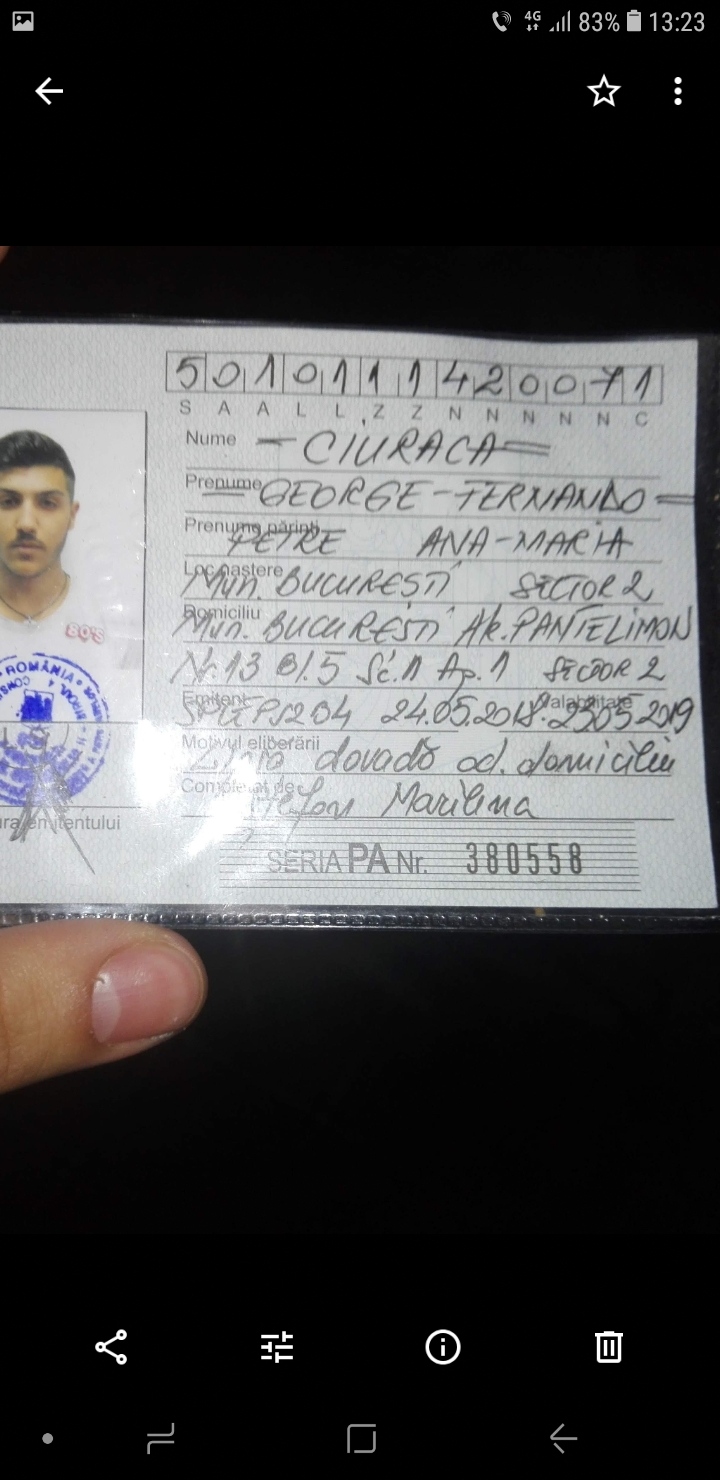 4G 83% 13:23
5 0 1 0 1 1 1 4 2 0 0 7 1
S A A L L Z Z N N N N N C
Nume CIURACA
Prenume GEORGE-FERNANDO
Prenume părinţi PETRE ANA-MARIA
Loc naştere Mun. BUCUREŞTI SECTOR 2
Domiciliu Mun. BUCUREŞTI Al. PANTELIMON
Nr. 13 Bl. 5 Sc. 1 Ap. 1 SECTOR 2
Emitent 24.05.2018 Valabilitate 23.05.2019
Motivul eliberării Lipsă dovadă ad. domiciliu
Completat de Marilena
80's
ROMÂNIA
SERIA PA Nr. 380558